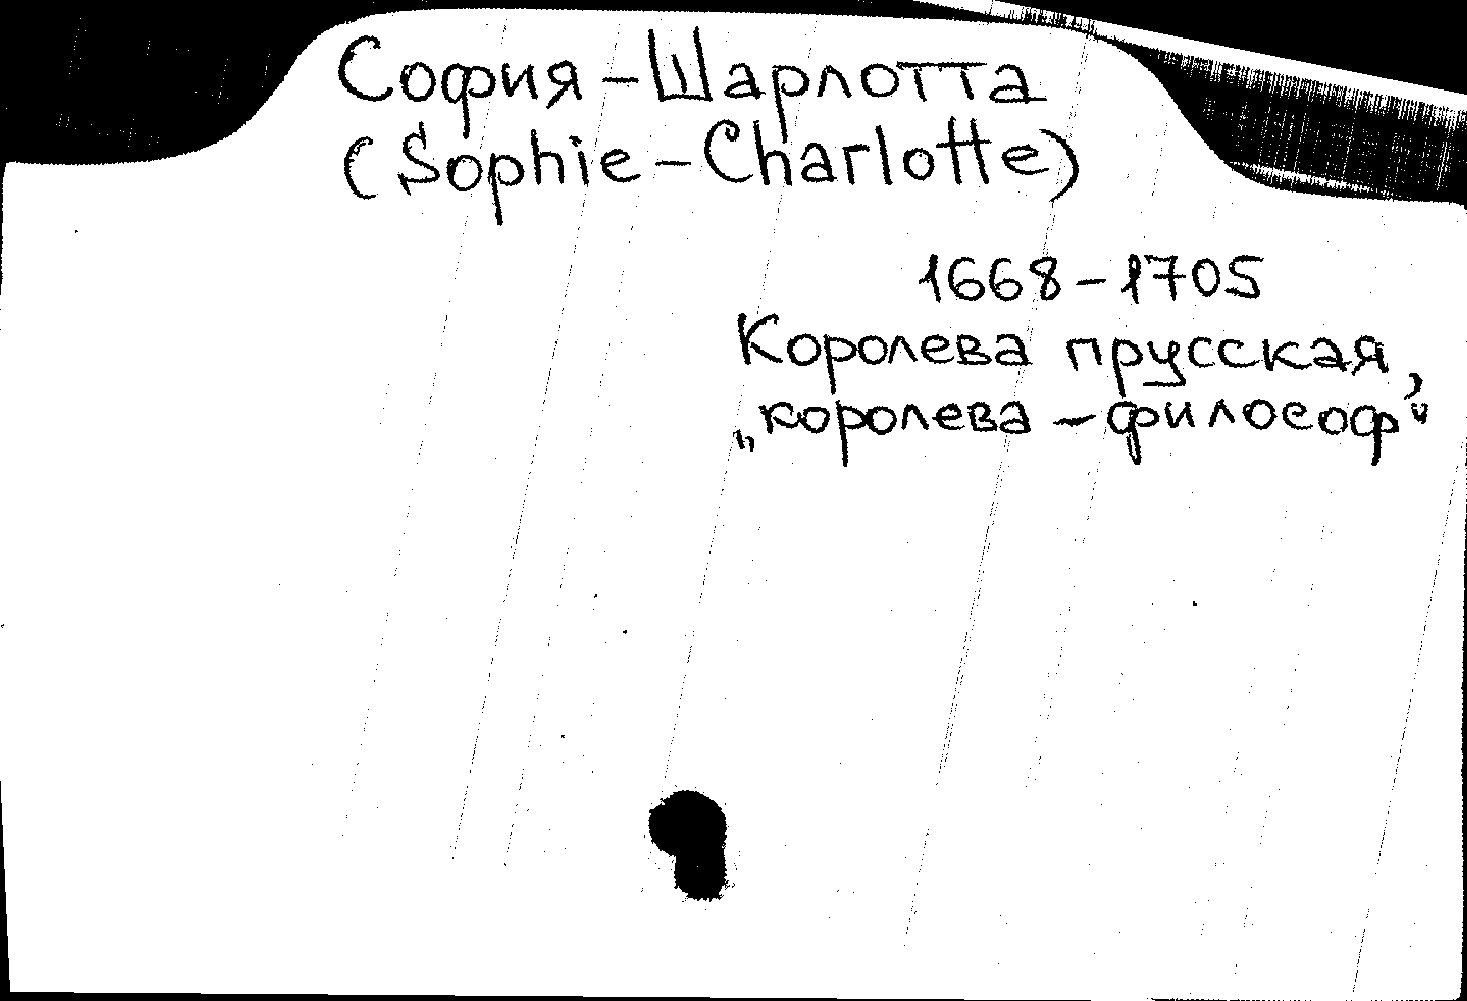 София-Шарлотта
(Sophie-Charlotte)
1668-1705
Королева прусская,
„королева-философ"